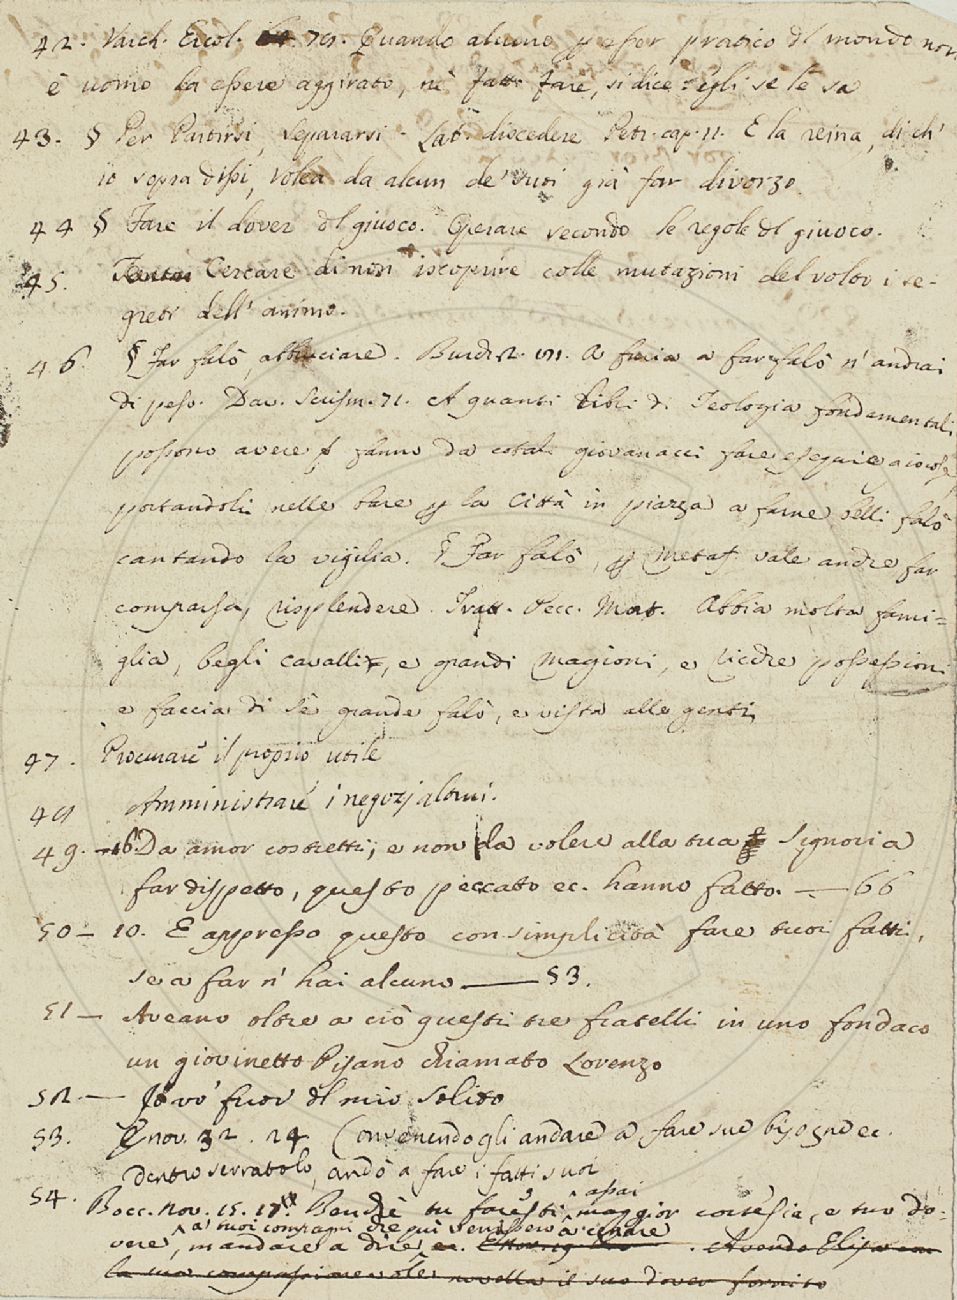 42. Varch. Ercol. 79. Quando alcuno p esser pratico dl mondo non
è uomo da essere aggirato, nè fatto fare, si dice egli se le sa
43. § Per Partirsi, Separarsi. Lat. discedere Petr. cap. 11. E la reina, di ch'
io sopra dissi, volea da alcun de' suoi già far divorzo.
44 § Fare il dover dl giuoco. Operare secondo le regole dl giuoco.
45. Cercare di non iscoprire colle mutazioni del volto i se-
greti dell' animo.
46 § Far falò, abbruciare. A furia a far falò n' andrai
di peso. Dav. Scism. 71. A quanti libri di Teologia fondamentali
possono avere fanno da cotali giovanacci fare eseguie a
portandoli nelle bare p la Città in piazza a farne belli falò
cantando la vigilia. § Far falò, p metaf. vale anche far
comparsa, risplendere. Tratt. Pecc. Mort. Abbia molta fami=
glia, begli cavalli, e grandi magioni, e ricche possessioni
e faccia di sè grande falò, e vista alle genti
47. Procurare il proprio utile
48 Amministrare i negozj altrui.
49. — 16. Da amor costretti, e non da volere alla tua Signoria
far dispetto, questo peccato ec. hanno fatto. — 66
50 — 10. E appresso questo con simplicità fare tuoi fatti,
se a far n' hai alcuno — 53.
51 — Aveano oltre a ciò questi tre fratelli in uno fondaco
un giovinetto Pisano chiamato Lorenzo
52. — Io vò fuor dl mio solito
53. E nov. 32. 24 Convenendogli andare a fare sue bisogne ec.
Dentro serratolo, andò a fare i fatti suoi
54. Bocc. Nov. 15. 17. Benchè tu facesti assai maggior cortesia, e tuo do-
vere, mandare a dire a' tuoi compagni che qui venissero a cenare ec. Avendo Elisa
la sua compassionevole novella il suo dover fornito